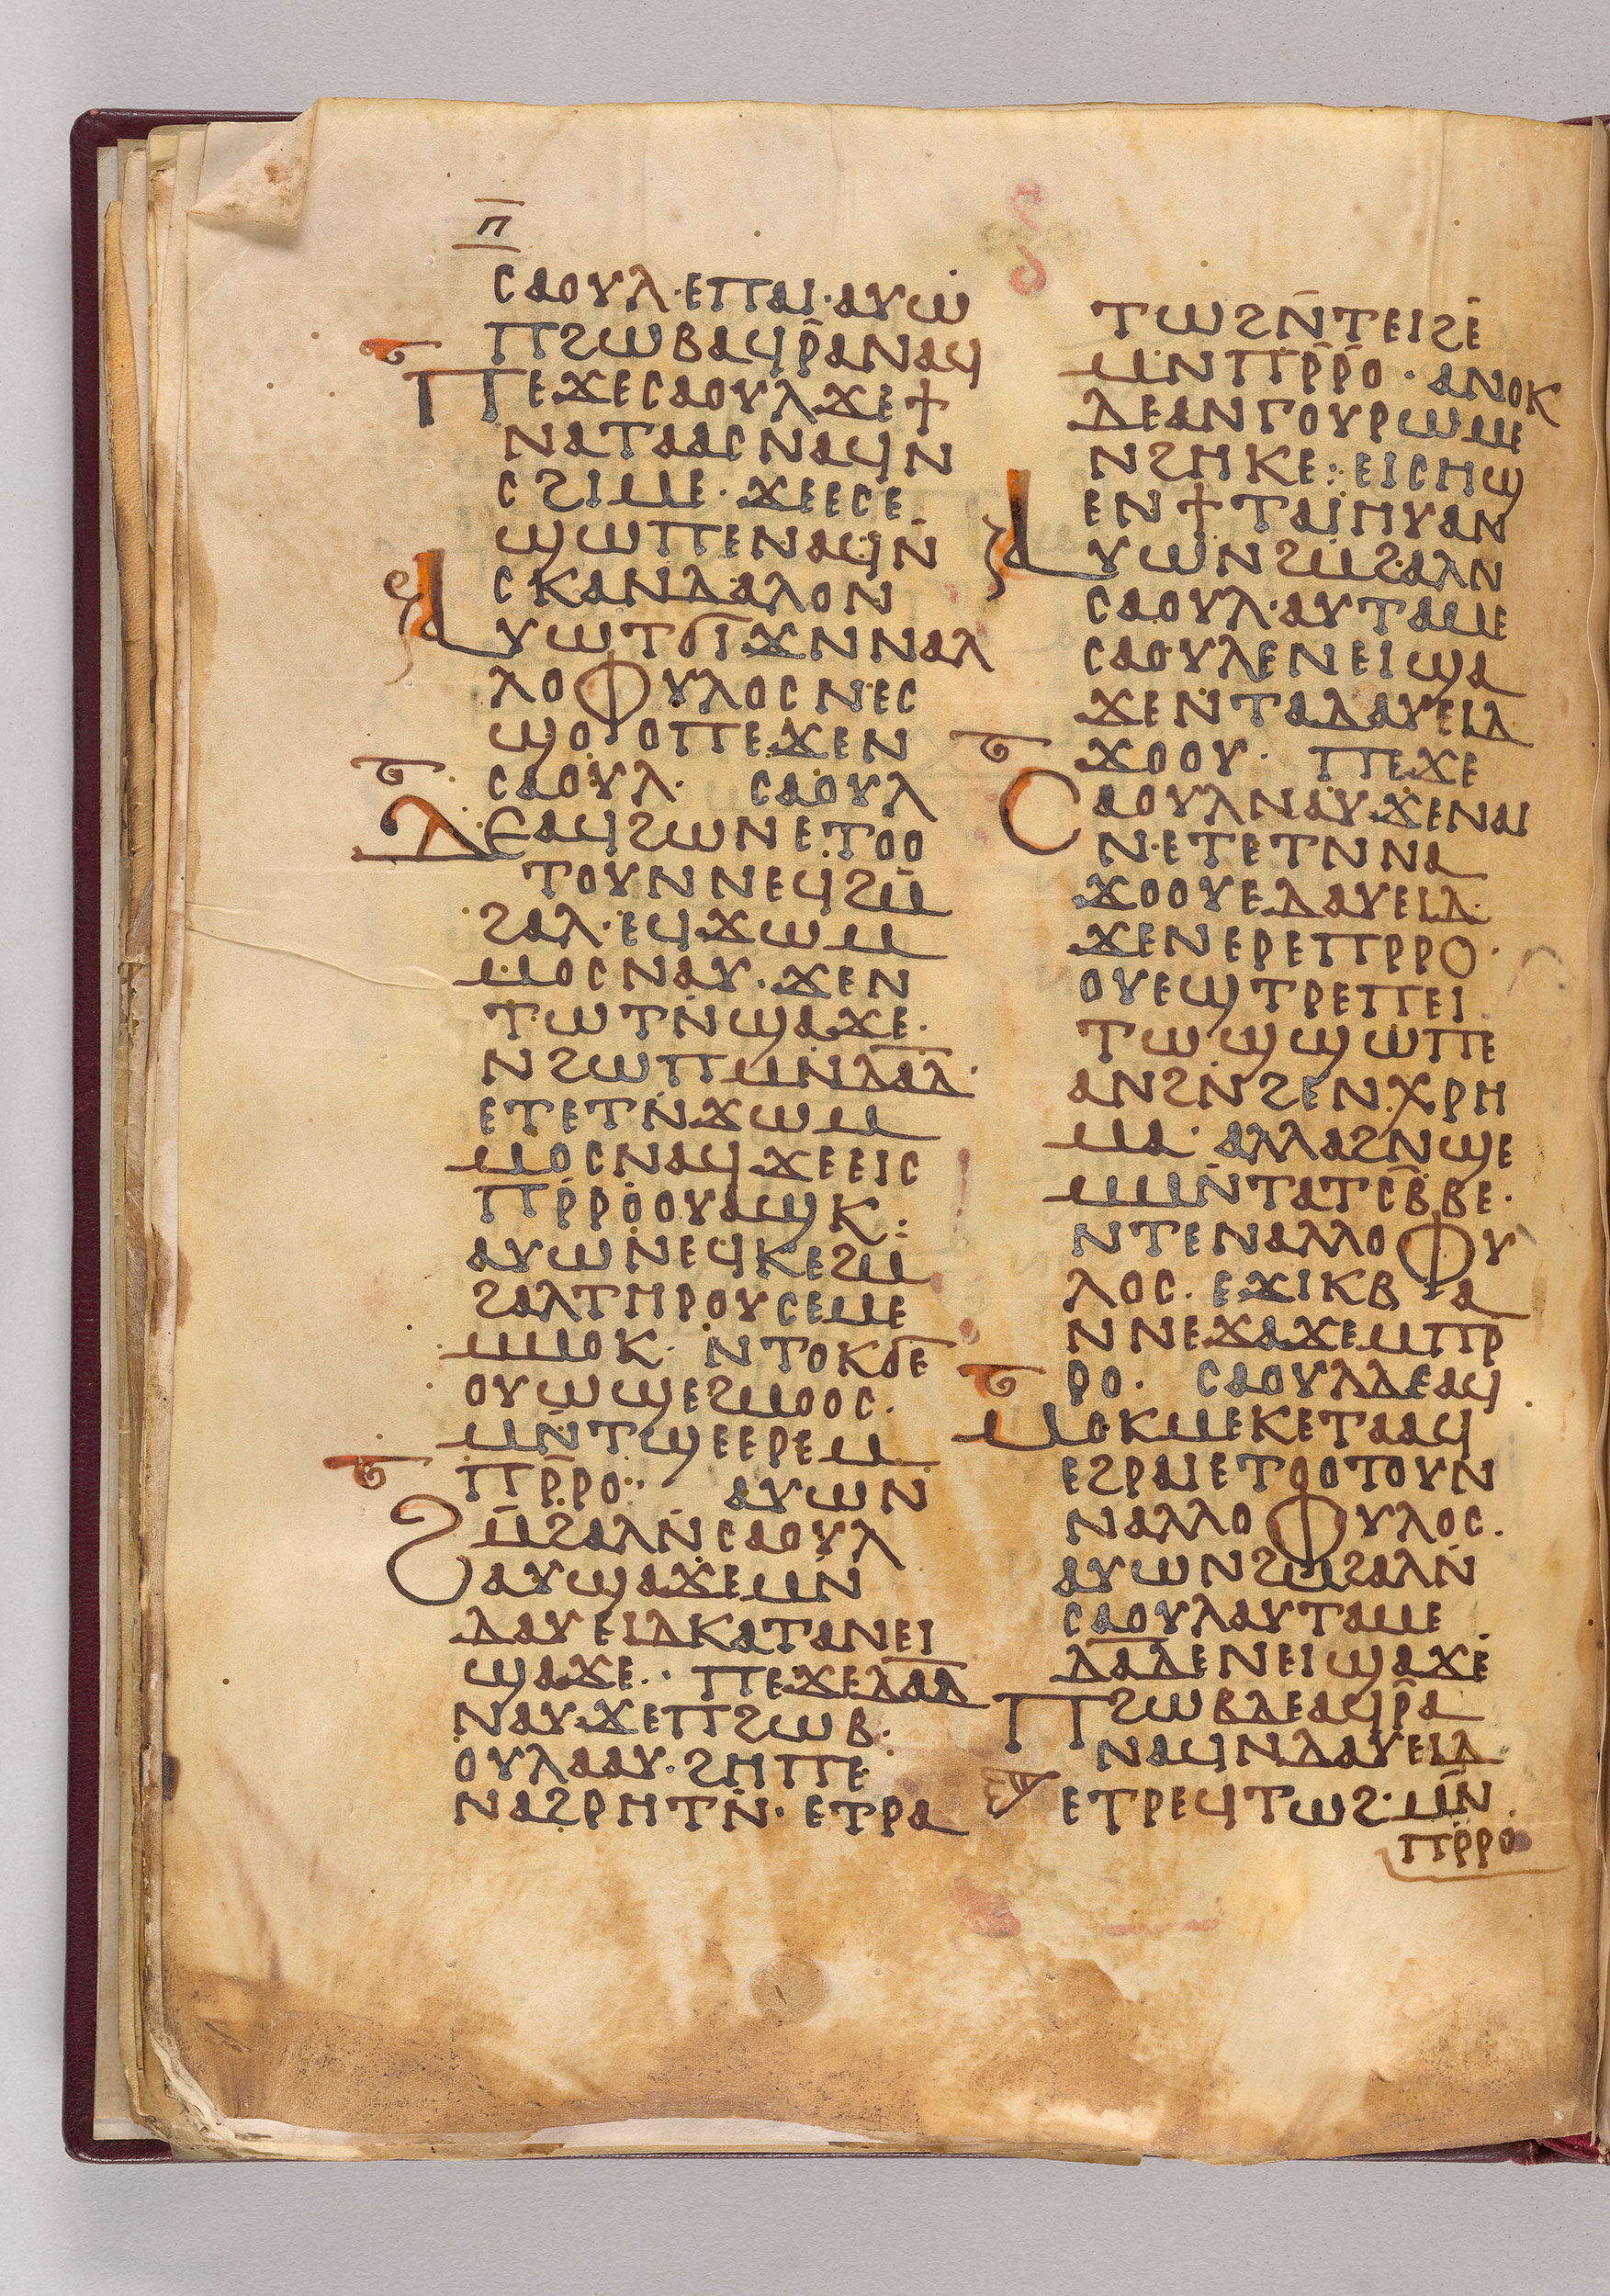 ⲡ̅
ⲥⲁⲟⲩⲗ·ⲉⲡⲁⲓ·ⲁⲩⲱ
ⲡϩⲱⲃⲁϥⲣ̄ⲁⲛⲁϥ
ⲡⲉϫⲉⲥⲁⲟⲩⲗϫⲉϯ
ⲛⲁⲧⲁⲁⲥⲛⲁϥⲛ
ⲥϩⲓⲙⲉ·ϫⲉⲉⲥⲉ
ϣⲱⲡⲉⲛⲁϥⲛ̄
ⲥⲕⲁⲛⲇⲁⲗⲟⲛ
ⲁⲩⲱⲧϭⲓϫⲛⲛⲁⲗ
ⲗⲟⲫⲩⲗⲟⲥⲛⲉⲥ
ϣⲟⲟⲡⲉϫⲉⲛ
ⲥⲁⲟⲩⲗ· ⲥⲁⲟⲩⲗ
ⲇⲉⲁϥϩⲱⲛⲉⲧⲟⲟ
ⲧⲟⲩⲛⲛⲉϥϩⲙ̄
ϩⲁⲗ·ⲉϥϫⲱⲙ
ⲙⲟⲥⲛⲁⲩ·ϫⲉⲛ
ⲧⲱⲧⲛ̄ϣⲁϫⲉ·
ⲛϩⲱⲡⲙⲛⲇⲁ̅ⲇ̅·
ⲉⲧⲉⲧⲛ̄ϫⲱⲙ
ⲙⲟⲥⲛⲁϥϫⲉⲉⲓⲥ
ⲡⲣ̄ⲣⲟⲟⲩⲁϣⲕ:
ⲁⲩⲱⲛⲉϥⲕⲉϩⲙ̄
ϩⲁⲗⲧⲏⲣⲟⲩⲥⲉⲙⲉ
ⲙⲙⲟⲕ·ⲛⲧⲟⲕϭⲉ
ⲟⲩⲱϣⲉϩⲙⲟⲟⲥ·
ⲙⲛ̄ⲧϣⲉⲉⲣⲉⲙ
ⲡⲣ̄ⲣⲟ·· ⲁⲩⲱⲛ
ϩⲙ̄ϩⲁⲗⲛ̄ⲥⲁⲟⲩⲗ
ⲁⲩϣⲁϫⲉⲙⲛ
ⲇⲁⲩⲉⲓⲇⲕⲁⲧⲁⲛⲉⲓ
ϣⲁϫⲉ·· ⲡⲉϫⲉⲇⲁ̅ⲇ̅
ⲛⲁⲩ·ϫⲉⲡϩⲱⲃ·
ⲟⲩⲗⲁⲁⲩ·ϩⲏⲡⲉ
ⲛⲁϩⲣⲏⲧⲛ̄·ⲉⲧⲣⲁ
ⲧⲱϩⲛ̄ⲧⲉⲓϩⲉ
ⲙⲛⲡⲣ̄ⲣⲟ·ⲁⲛⲟⲕ
ⲇⲉⲁⲛⲅⲟⲩⲣⲱⲙⲉ
ⲛϩⲏⲕⲉ:ⲉⲓⲥⲏϣ
ⲉⲛϯⲧⲁⲓⲏⲩⲁⲛ
ⲁⲩⲱⲛϩⲙϩⲁⲗⲛ
ⲥⲁⲟⲩⲗ·ⲁⲩⲧⲁⲙⲉ
ⲥⲁⲟⲩⲗⲉⲛⲉⲓϣⲁ
ϫⲉⲛⲧⲁⲇⲁⲩⲉⲓⲇ
ϫⲟⲟⲩ· ⲡⲉϫⲉ
ⲥⲁⲟⲩⲗⲛⲁⲩϫⲉⲛⲁⲓ
ⲛⲉⲧⲉⲧⲛⲛⲁ
ϫⲟⲟⲩⲉⲇⲁⲩⲉⲓⲇ·
ϫⲉⲛⲉⲣⲉⲡⲣⲣⲟ·
ⲟⲩⲉϣⲧⲣⲉⲡⲉⲓ
ⲧⲱϣϣⲱⲡⲉ
ⲁⲛϩⲛ̄ϩⲉⲛⲭⲣⲏ
ⲙⲁ·ⲁⲗⲗⲁϩⲛϣⲉ
ⲙⲙⲛ̄ⲧⲁⲧⲥⲃ̄ⲃⲉ·
ⲛⲧⲉⲛⲁⲗⲗⲟⲫⲩ
ⲗⲟⲥ·ⲉϫⲓⲕⲃⲁ
ⲛⲛⲉϫⲁϫⲉⲙⲡⲣ
ⲣⲟ· ⲥⲁⲟⲩⲗⲇⲉⲁϥ
ⲙⲟⲕⲙⲉⲕⲉⲧⲁⲁϥ
ⲉϩⲣⲁⲓⲉⲧⲟⲟⲧⲟⲩⲛ
ⲛⲁⲗⲗⲟⲫⲩⲗⲟⲥ·
ⲁⲩⲱⲛϩⲙϩⲁⲗⲛ̄
ⲥⲁⲟⲩⲗⲁⲩⲧⲁⲙⲉ
ⲇⲁ̅ⲇ̅ⲉⲛⲉⲓϣⲁϫⲉ
ⲡϩⲱⲃⲇⲉⲁϥⲣ̄ⲁ
ⲛⲁϥⲛⲇⲁⲩⲉⲓⲇ
ⲉⲧⲣⲉϥⲧⲱϩ·ⲙⲛ̄
ⲡⲣ̄ⲣⲟ